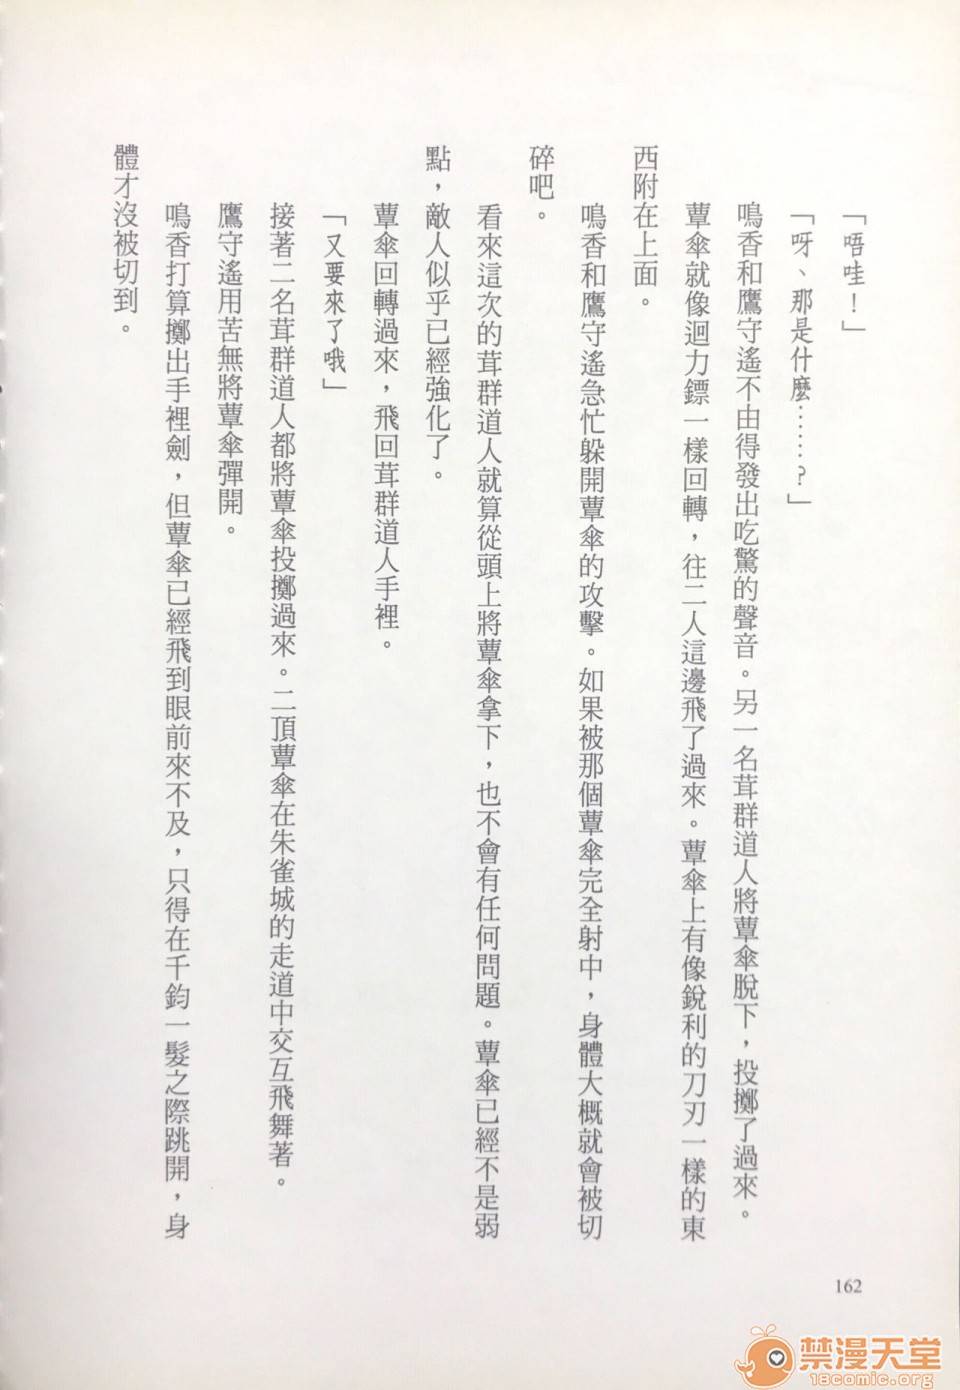 「唔哇！」
「呀、那是什麼……？」
鳴香和鷹守遙不由得發出吃驚的聲音。另一名茸群道人將蕈傘脫下，投擲了過來。
蕈傘就像迴力鏢一樣回轉，往二人這邊飛了過來。蕈傘上有像銳利的刀刃一樣的東
西附在上面。
鳴香和鷹守遙急忙躲開蕈傘的攻擊。如果被那個蕈傘完全射中，身體大概就會被切
碎吧。
看來這次的茸群道人就算從頭上將蕈傘拿下，也不會有任何問題。蕈傘已經不是弱
點，敵人似乎已經強化了。
蕈傘回轉過來，飛回茸群道人手裡。
「又要來了哦」
接著二名茸群道人都將蕈傘投擲過來。二頂蕈傘在朱雀城的走道中交互飛舞著。
鷹守遙用苦無將蕈傘彈開。
鳴香打算擲出手裡劍，但蕈傘已經飛到眼前來不及，只得在千鈞一髮之際跳開，身
體才沒被切到。
162
禁漫天堂
18comic.org